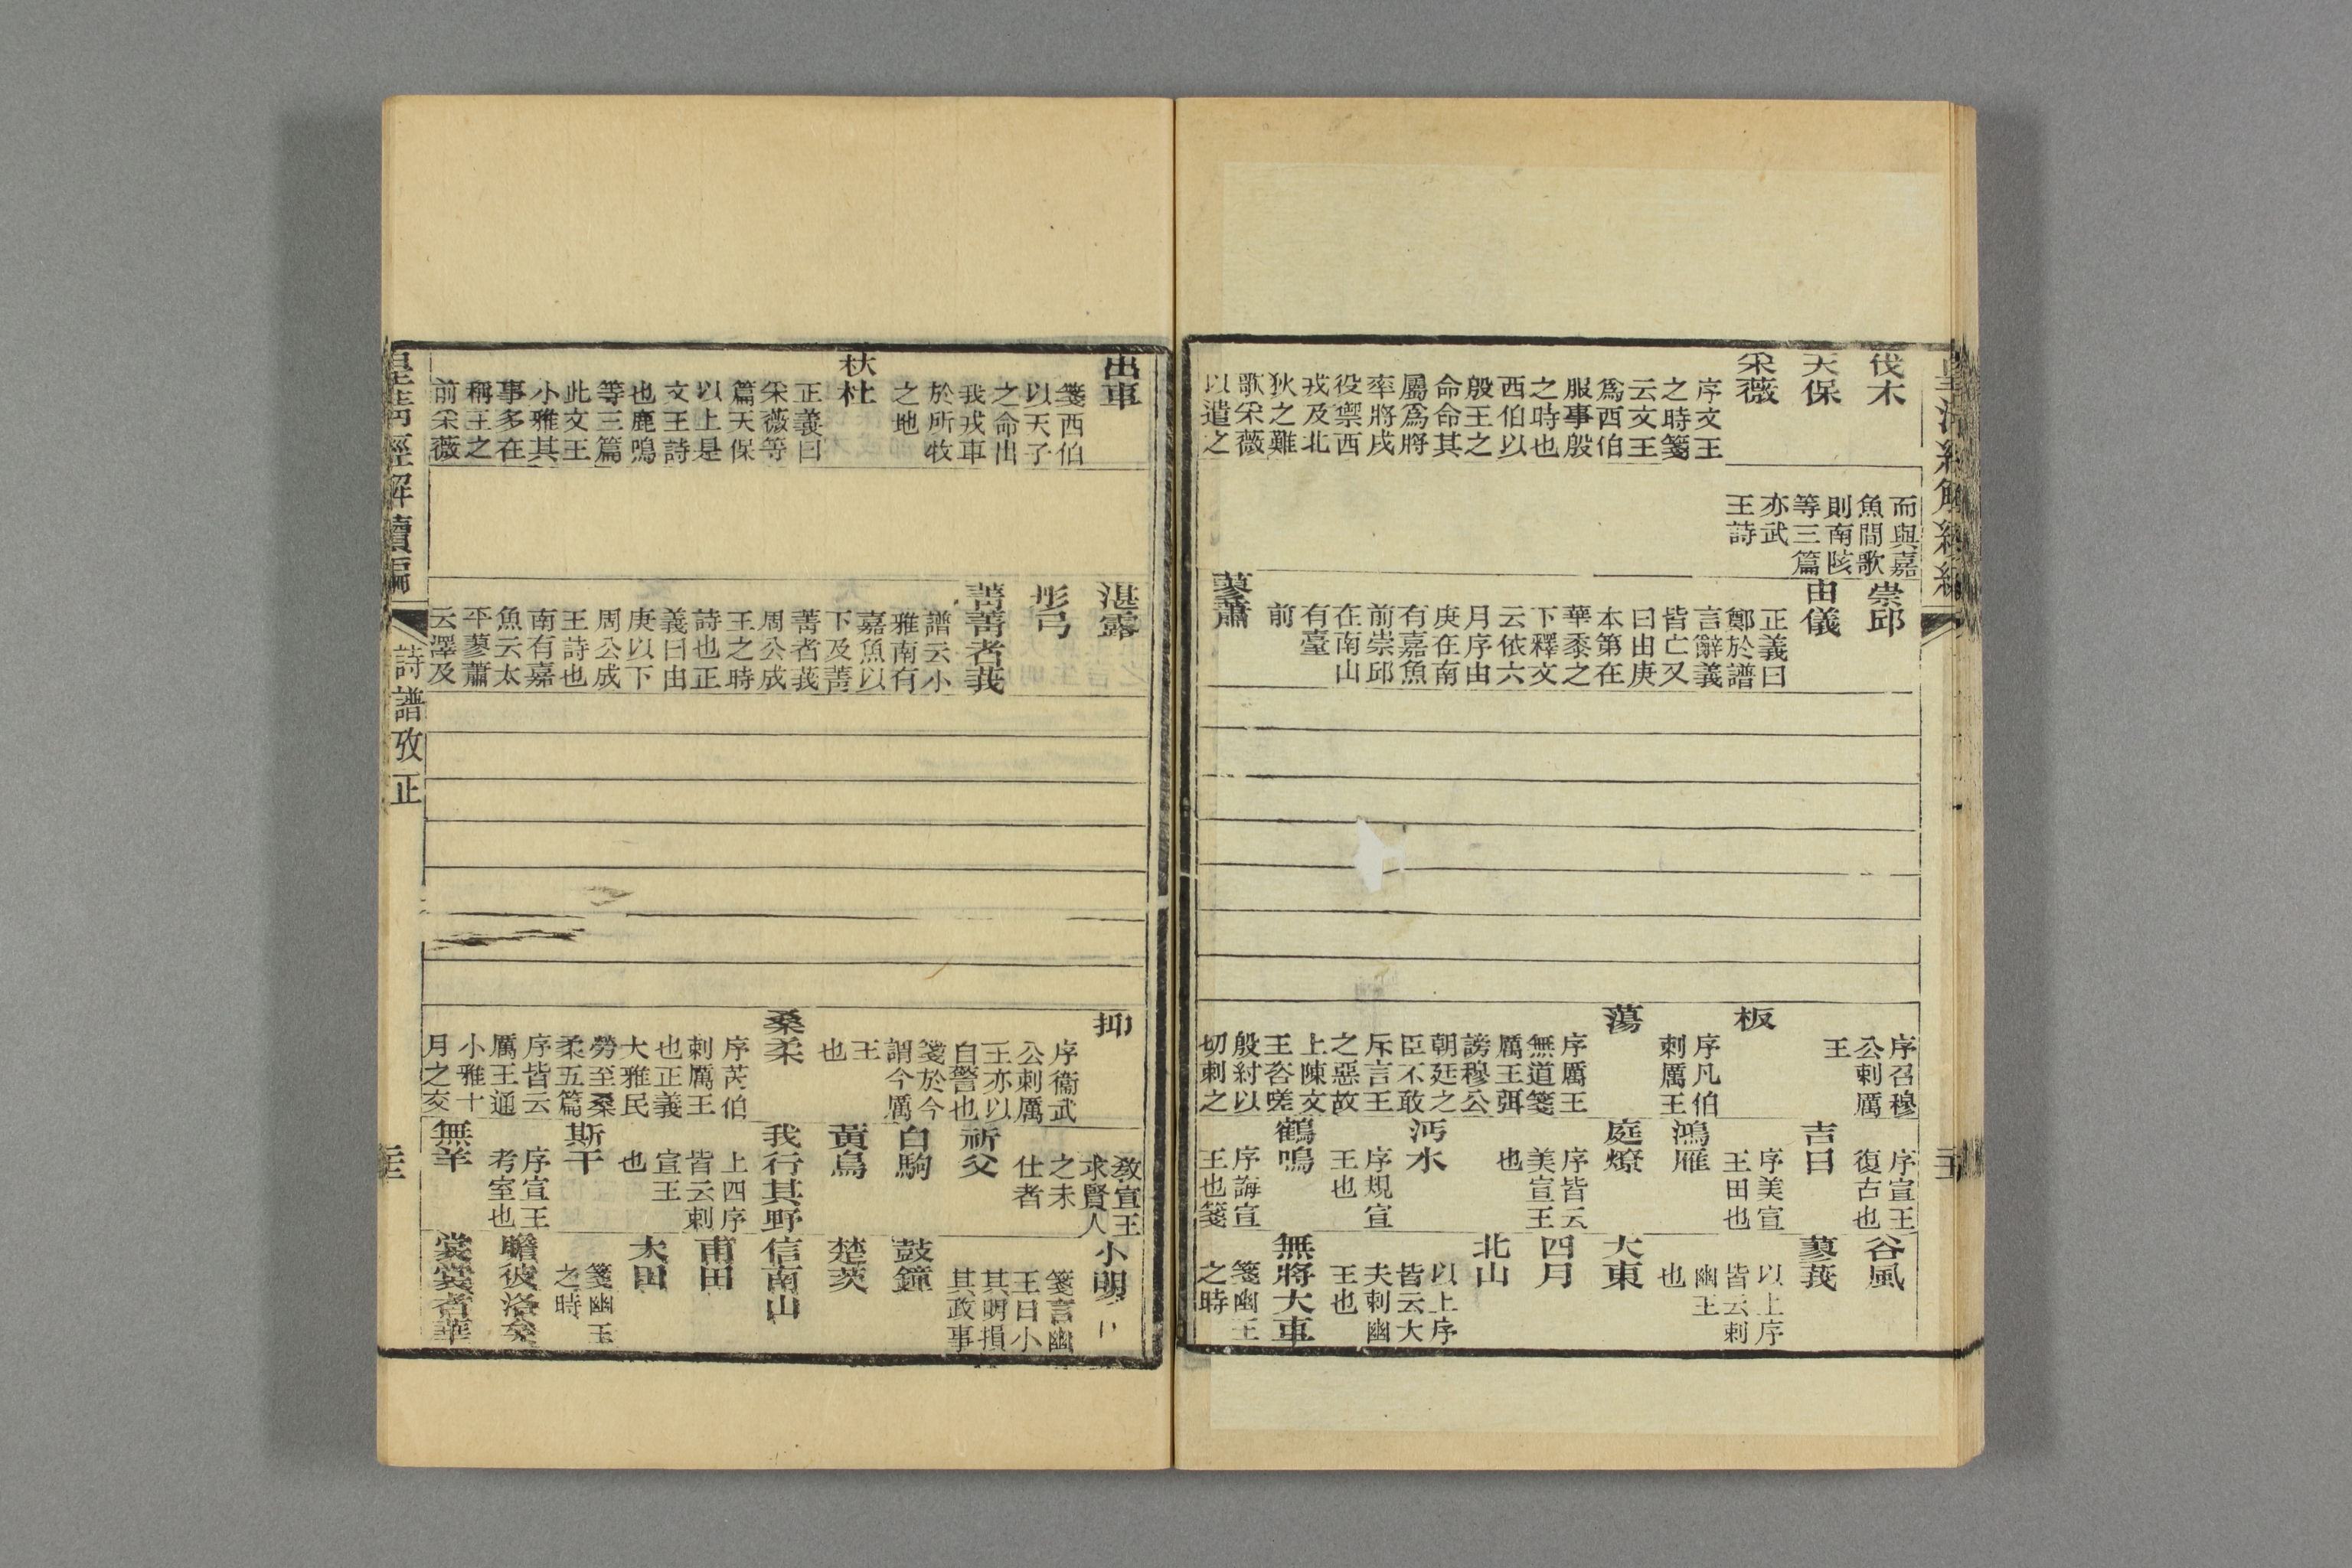 皇清經解續編
三
伐木
天保
采薇
序文王
之時箋
云文王
爲西伯
服事殷
之時也
西伯以
殷王之
命命其
屬爲將
率將戍
役禦西
戎及北
狄之難
歌采薇
以遣之
而與嘉
魚間歌
則南陔
等三篇
亦武
王詩
崇邱
由儀
正義曰
鄭於譜
言辭義
皆亡又
曰由庚
本第在
華黍之
下釋文
云依六
月序由
庚在南
有嘉魚
前崇邱
在南山
有臺
前
蓼蕭
序召穆
公刺厲
王
板
序凡伯
刺厲王
蕩
序厲王
無道箋
厲王弭
謗穆公
朝廷之
臣不敢
斥言王
之惡故
上陳文
王咨嗟
殷紂以
切刺之
序宣王
復古也
吉日
序美宣
王田也
鴻雁
庭燎
序皆云
美宣王
也
沔水
序規宣
王也
鶴鳴
序誨宣
王也箋
谷風
蓼莪
以上序
皆云刺
幽王
也
大東
四月
北山
以上序
皆云大
夫刺幽
王也
無將大車
箋幽王
之時
出車
箋西伯
以天子
之命出
我戎車
於所牧
之地
杕杜
正義曰
采薇等
篇天保
以上是
文王詩
也鹿鳴
等三篇
此文王
小雅其
事多在
稱王之
前采薇
湛露
彤弓
菁菁者莪
譜云小
雅南有
嘉魚以
下及菁
菁者莪
周公成
王之時
詩也正
義曰由
庚以下
周公成
王詩也
南有嘉
魚云太
平蓼蕭
云澤及
抑
序衞武
公刺厲
王亦以
自警也
箋於今
謂今厲
王
也
桑柔
序芮伯
刺厲王
也正義
大雅民
勞至桑
柔五篇
序皆云
厲王通
小雅十
月之交
教宣王
求賢人
之未
仕者
祈父
白駒
黃鳥
我行其野
上四序
皆云刺
宣王
也
斯干
序宣王
考室也
無羊
小明
箋言幽
王日小
其明損
其政事
鼓鐘
楚茨
信南山
甫田
大田
箋幽王
之時
瞻彼洛矣
裳裳者華
皇清經解續編
詩譜攷正